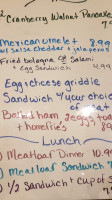 2 Cranberry Walnut Pancakes
Mexican omelet
w/ salsa cheddar + jalapeno's 8.99
Fried bologna or Salami
+ Egg Sandwich
Egg + cheese griddle
Sandwich + your choice
of meat
Baked ham 2 eggs toast
+ homefries 8.99
Lunch
Meatloaf Dinner 10.99
Meatloaf Sandwich
1/2 Sandwich + Cup of S